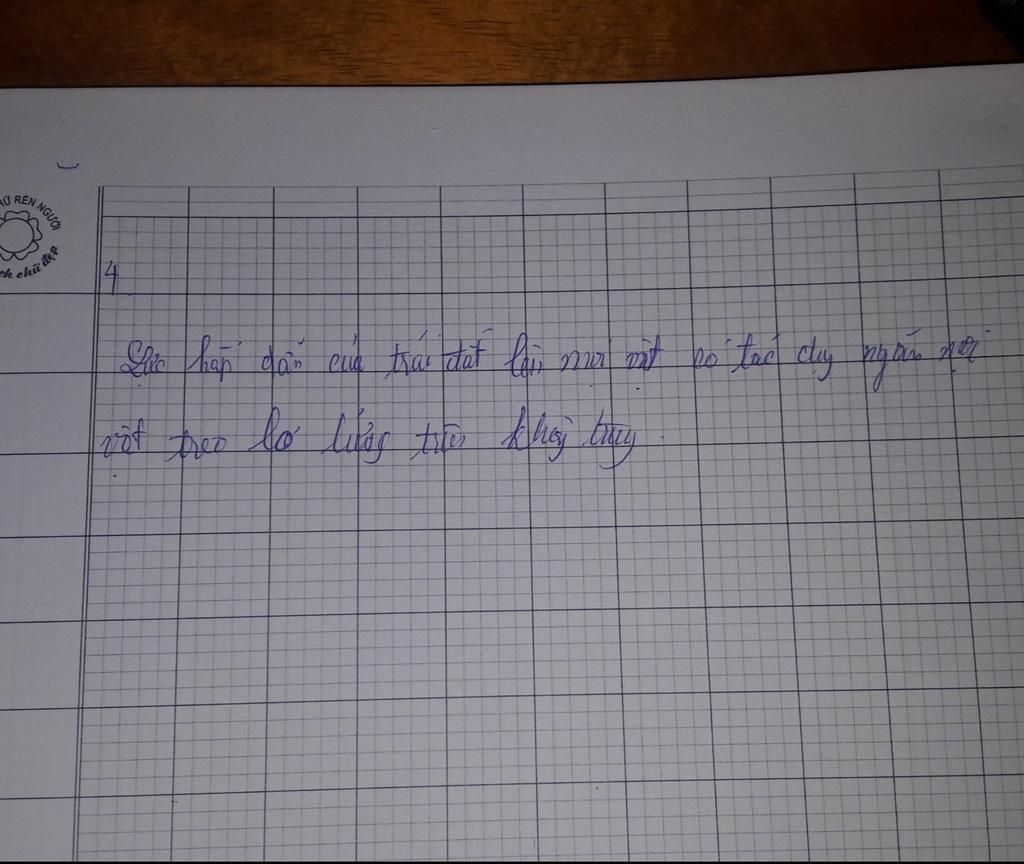 HỮ RÈN NGƯỜI
ch chữ đẹp
4
Lực hấp dẫn của trái đất lên mọi vật có tác dụng ngăn mọi
vật treo lơ lửng trên không trung.